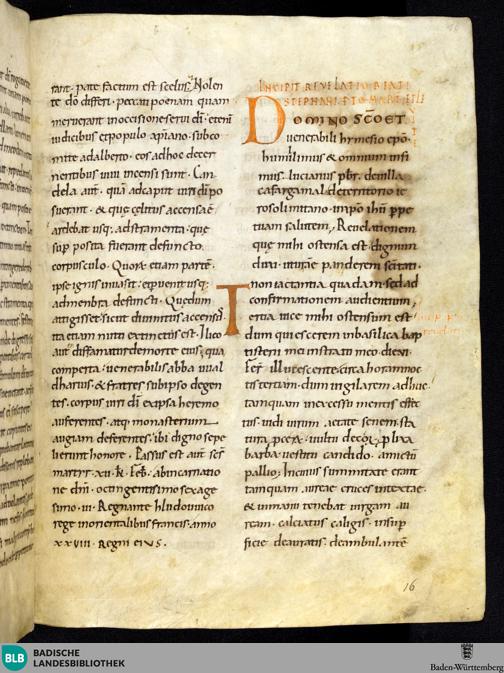 rant. pate factum est scelus. Nolen
te do differi. peccati poenam quam
meruerant in occisione serui di. etenī
iudicibus et populo a piano. subco
mite adalberto. eos ad hoc decer
nentibus uiui incensi sunt. Can
dela aut. quā ad caput uiri di po
suerant. & quę cęlitus accensae
ardebat usq; ad stramenta. que
sup posita fuerant defuncto.
corpusculo. Quorū etiam partē.
ipse ignis inuasit. et pueniusq;
ad membra defuncti. Quę dum
attigisset. sicut diuinitus accensa.
ita etiam nutu extinctus est. Ilico
aut diffamatur de morte eius; qua
comperta. uenerabilis abba uual
dharius. & fratres sub ipso degen
tes. corpus uiri di ex ipsa heremo
auferentes. atq; monasterium
augiam deferentes. ibi digno sepe
lierunt honore. Passus est aut scs
martyr. xii. k. feb. ab incarnatio
ne dni. octingentisimo sexage
simo. iii. Regnante hludouuico
rege in orientalibus francis. anno
xxviii. regni eius.
INCIPIT REVELATIO BEATI
STEPHANI PTOMARTIRIS
DOMINO SCO ET
uenerabili hymesio epo.
humilimus & omnium infi
mus. lucianus pbr. de uilla
cafargamal de territorio ie
rosolimitano. in xpo ihu ppe
tuam salutem. Reuelationem
que mihi ostensa est. dignum
duxi. uestrae pandere sctitati.
non iactantia quadam. sed ad
confirmationem audientium,
Tertia uice mihi ostensum est.
dum quiescerem in basilica bap
tisterii mei in strato meo. die xi.
feb. illucescente. circa hora noc
tis tertiam. dum uigilarem adhuc.
tamquam in excessu mentis effec
tus. uidi uirum. aetate senem. sta
tura pcera. uultu decorū. plixa
barba. uestitu candido. amictū
pallio; In cuius summitate erant
tamquam aureae cruces intextae.
& in manu tenebat uirgam. au
ream. calciatus caligis. in sup
ficie deauratis. deambulantē
16
BLB BADISCHE
LANDESBIBLIOTHEK
Baden-Württemberg